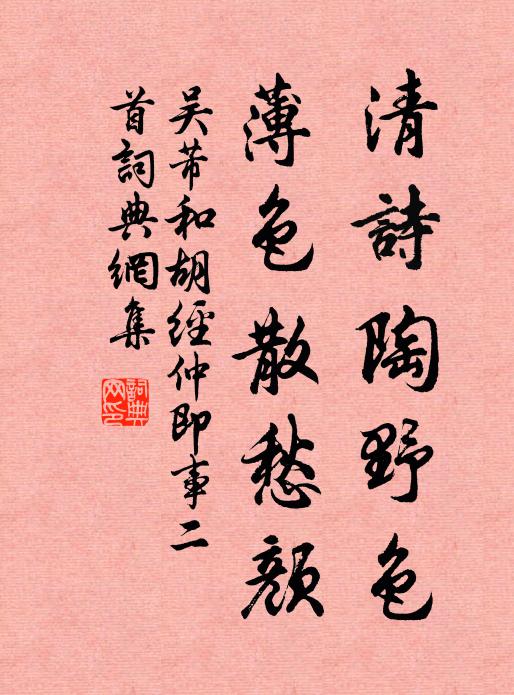 清詩陶野色
薄色散愁顔
吴芾和胡經仲即事二
首詞典網集
詞典
网印